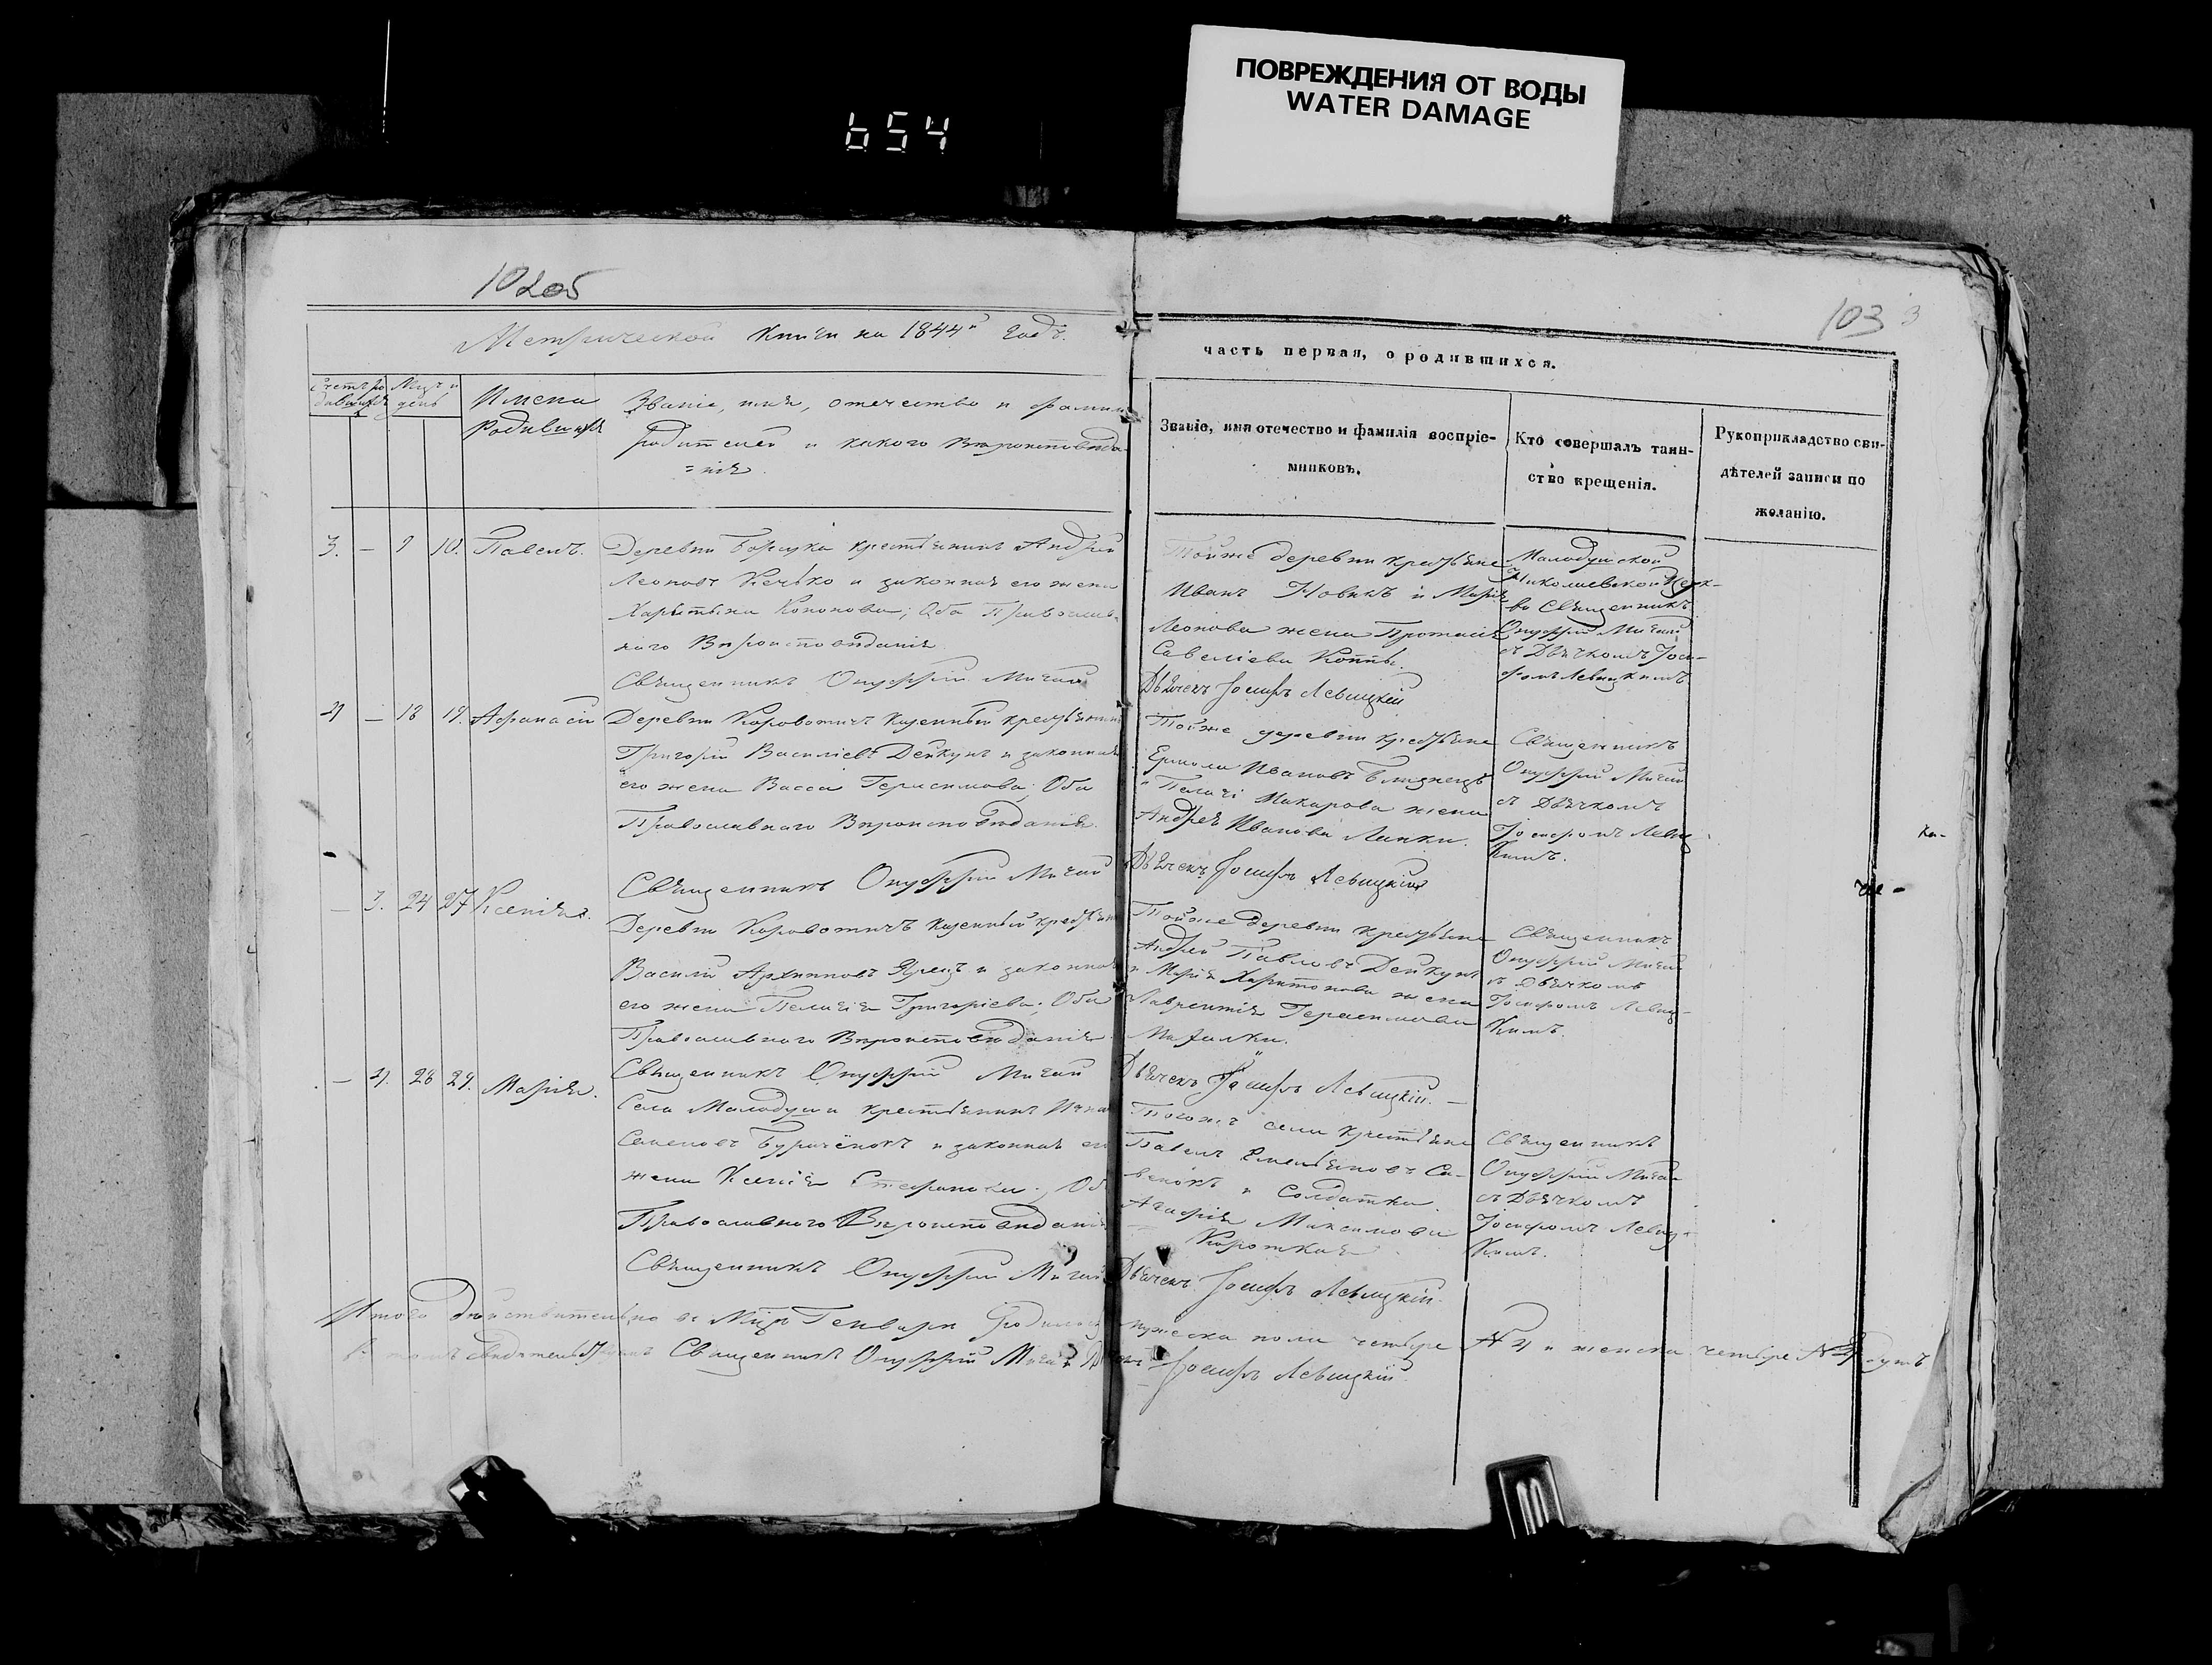 ПОВРЕЖДЕНИЯ ОТ ВОДЫ
WATER DAMAGE
654
103
Метрической книги на 1844й годъ.
часть первая, о родившихся.
Счетъ родившихся
Мцъ и день
Имена родившихся
Званіе, имя, отечество и фамилія
родителей и какого вѣроисповѣда-
=нія.
Званіе, имя отечество и фамилія воспріе-
мниковъ.
Кто совершалъ таин-
ство крещенія.
Рукоприкладство сви-
дѣтелей записи по
желанію.
3. — 9 10. Павелъ.
Деревни Борщка крестьянинъ Андрей
Леоновъ и законная его жена
Харытына Кононова; Оба Православ-
наго Вѣроисповѣданія
Священникъ Онуфрій Мигай
Тойже деревни крестьяне
Иванъ Новикъ и Марія
Леонова жена Протасія
Савеліева
Дьячекъ Іосифъ Левицкій
Малодушской
Николаевской Церк-
ви Священникъ
Онуфрій Мигай
съ Дьячкомъ Іоси-
фомъ Левицкимъ
4 — 18 19. Афанасій
Деревни Короватичъ казенный крестьянинъ
Григорій Василіевъ Дейкунъ и законная
его жена Васса Герасимова; Оба
Православнаго Вѣроисповѣданія.
Священникъ Онуфрій Мигай
Тойже деревни крестьяне
Ермола Ивановъ Близнецъ
и Пелагія Макарова жена
Андрея Иванова Липки.
Дьячекъ Іосифъ Левицкій
Священникъ
Онуфрій Мигай
съ Дьячкомъ
Іосифомъ Левиц-
кимъ.
— 3. 24 27 Ксенія.
Деревни Короватичъ казенный крестьянинъ
Василій Архиповъ и законная
его жена Пелагія Григоріева; Оба
Православнаго Вѣроисповѣданія.
Священникъ Онуфрій Мигай
Тойже деревни крестьяне
Андрей Павловъ Дейкунъ
и Марія Харитонова жена
Лаврентія Герасимова
Дьячекъ Іосифъ Левицкій.—
Священникъ
Онуфрій Мигай
съ Дьячкомъ
Іосифомъ Левиц-
кимъ.
— 4. 28 29. Марія.
Села Малодуши крестьянинъ
Семеновъ Бурачёнокъ и законная его
жена Ксенія Стефанова; Оба
Православнаго Вѣроисповѣданія
Священникъ Онуфрій Мигай
Тогожъ села крестьяне
Павелъ Емельяновъ Са-
венокъ и Солдатка
Агафія Максимова
Короткая
Дьячекъ Іосифъ Левицкій.
Священникъ
Онуфрій Мигай
съ Дьячкомъ
Іосифомъ Левиц-
кимъ.
Итого дѣйствительно въ Мцѣ Генварѣ родилось мужеска пола четыре № 4 и женска четыре № 4
Священникъ Онуфрій Мигай Іосифъ Левицкій.